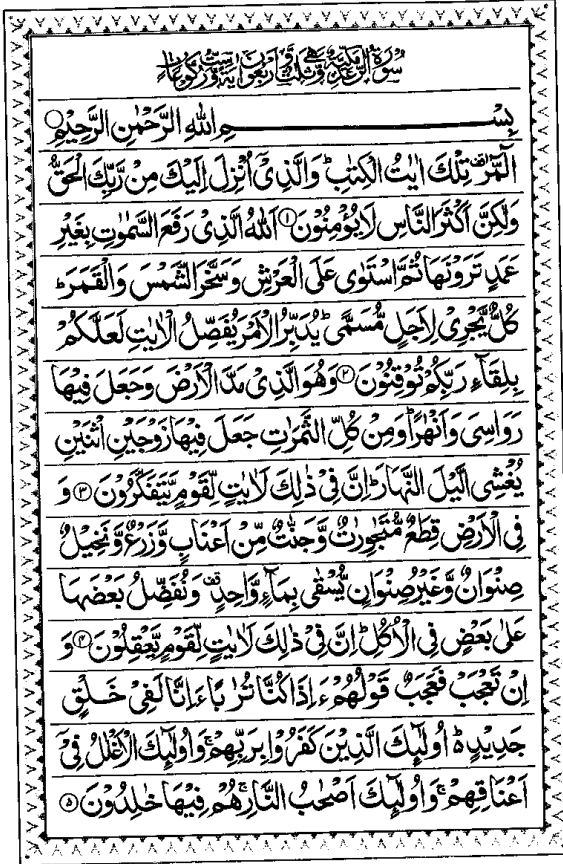 سُوْرَةُ الرَّعْدِ مَكِّيَّةٌ وَّهِيَ ثَلٰثٌ وَّاَرْبَعُوْنَ اٰيَةً وَّسِتُّ رُكُوْعَاتٍ
بِسْمِ اللّٰهِ الرَّحْمٰنِ الرَّحِيْمِ
الٓمّٓرٰ تِلْكَ اٰيٰتُ الْكِتٰبِ ؕ وَالَّذِيْۤ اُنْزِلَ اِلَيْكَ مِنْ رَّبِّكَ الْحَقُّ
وَلٰكِنَّ اَكْثَرَ النَّاسِ لَا يُؤْمِنُوْنَ ۝۱ اَللّٰهُ الَّذِيْ رَفَعَ السَّمٰوٰتِ بِغَيْرِ
عَمَدٍ تَرَوْنَهَا ثُمَّ اسْتَوٰى عَلَى الْعَرْشِ وَسَخَّرَ الشَّمْسَ وَالْقَمَرَ ؕ
كُلٌّ يَّجْرِيْ لِاَجَلٍ مُّسَمًّى ؕ يُدَبِّرُ الْاَمْرَ يُفَصِّلُ الْاٰيٰتِ لَعَلَّكُمْ
بِلِقَآءِ رَبِّكُمْ تُوْقِنُوْنَ ۝۲ وَهُوَ الَّذِيْ مَدَّ الْاَرْضَ وَجَعَلَ فِيْهَا
رَوَاسِيَ وَاَنْهٰرًا ؕ وَمِنْ كُلِّ الثَّمَرٰتِ جَعَلَ فِيْهَا زَوْجَيْنِ اثْنَيْنِ
يُغْشِي الَّيْلَ النَّهَارَ ؕ اِنَّ فِيْ ذٰلِكَ لَاٰيٰتٍ لِّقَوْمٍ يَّتَفَكَّرُوْنَ ۝۳ وَ
فِي الْاَرْضِ قِطَعٌ مُّتَجٰوِرٰتٌ وَّجَنّٰتٌ مِّنْ اَعْنَابٍ وَّزَرْعٌ وَّنَخِيْلٌ
صِنْوَانٌ وَّغَيْرُ صِنْوَانٍ يُّسْقٰى بِمَآءٍ وَّاحِدٍ ۫ وَنُفَضِّلُ بَعْضَهَا
عَلٰى بَعْضٍ فِي الْاُكُلِ ؕ اِنَّ فِيْ ذٰلِكَ لَاٰيٰتٍ لِّقَوْمٍ يَّعْقِلُوْنَ ۝۴ وَ
اِنْ تَعْجَبْ فَعَجَبٌ قَوْلُهُمْ ءَاِذَا كُنَّا تُرٰبًا ءَاِنَّا لَفِيْ خَلْقٍ
جَدِيْدٍ ؕ۬ اُولٰٓئِكَ الَّذِيْنَ كَفَرُوْا بِرَبِّهِمْ ۚ وَاُولٰٓئِكَ الْاَغْلٰلُ فِيْۤ
اَعْنَاقِهِمْ ۚ وَاُولٰٓئِكَ اَصْحٰبُ النَّارِ ۚ هُمْ فِيْهَا خٰلِدُوْنَ ۝۵